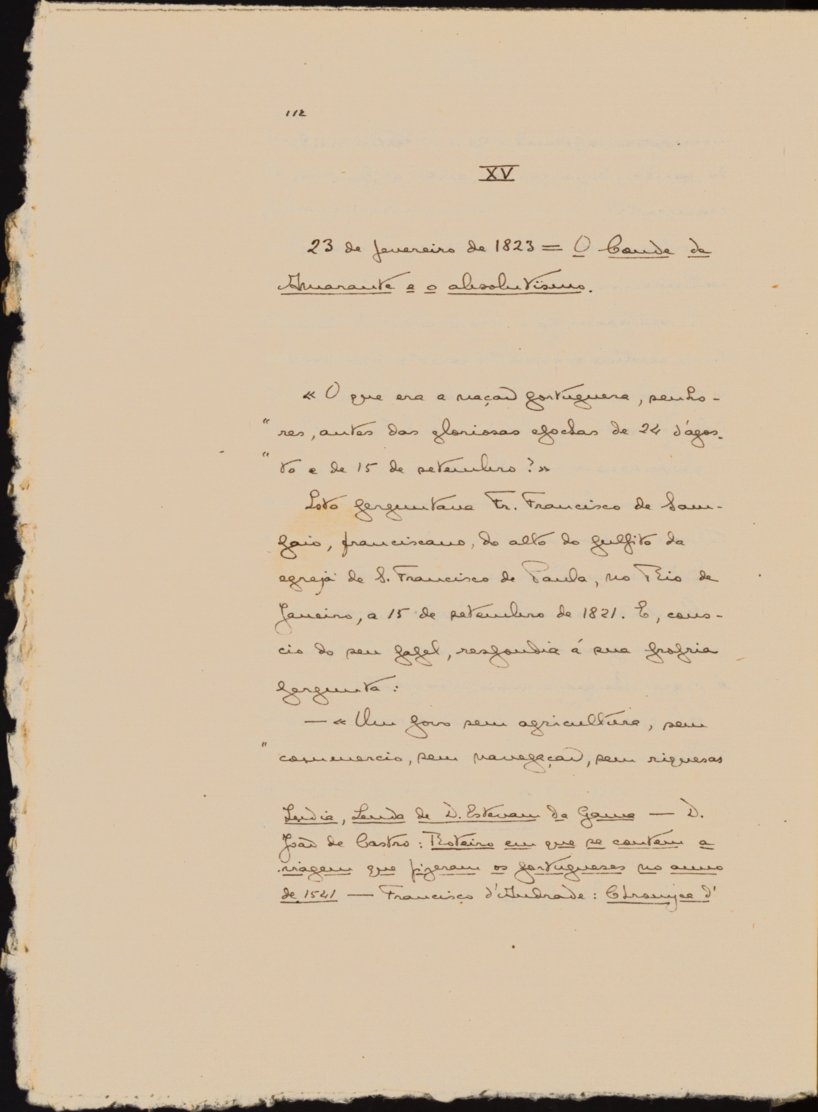 112
XV
23 de fevereiro de 1823 = O Conde de
Amarante e o absolutismo.
« O que era a nação portuguesa, senho-
" res, antes das gloriosas epochas de 24 d'agos-
" to e de 15 de setembro ? »
Isto perguntava Fr. Francisco de Sam-
paio, franciscano, do alto do pulpito da
egreja de S. Francisco de Paula, no Rio de
Janeiro, a 15 de setembro de 1821. E, cons-
cio do seu papel, respondia á sua propria
pergunta :
— « Um povo sem agricultura, sem
" commercio, sem navegação, sem riquesas
Lendo de D. Estevam da Gama — D.
João de Castro : Roteiro em que se contem a
viagem que fizeram os portugueses no anno
de 1541 — Francisco d'Andrade : Chronica d'